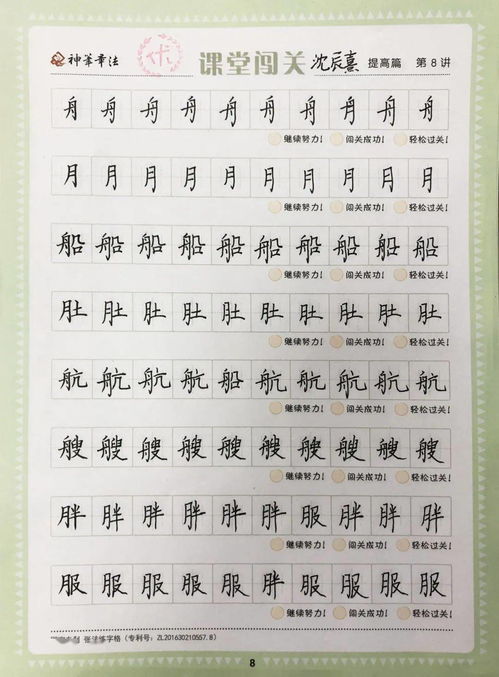 神筆章法 优 课堂闯关 沈辰熹 提高篇 第8讲
舟 舟 舟 舟 舟 舟 舟 舟 舟 舟
继续努力! 闯关成功! 轻松过关!
月 月 月 月 月 月 月 月 月 月
继续努力! 闯关成功! 轻松过关!
船 船 船 船 船 船 船 船 船 船
继续努力! 闯关成功! 轻松过关!
肚 肚 肚 肚 肚 肚 肚 肚 肚 肚
继续努力! 闯关成功! 轻松过关!
航 航 航 航 船 航 航 航 航 航
继续努力! 闯关成功! 轻松过关!
艘 艘 艘 艘 艘 艘 艘 艘 艘 艘
继续努力! 闯关成功! 轻松过关!
胖 胖 胖 胖 胖 胖 服 胖 胖 胖
继续努力! 闯关成功! 轻松过关!
服 服 服 服 服 胖 服 服 服 服
继续努力! 闯关成功! 轻松过关!
练字格（专利号：ZL201630210557.8）
8